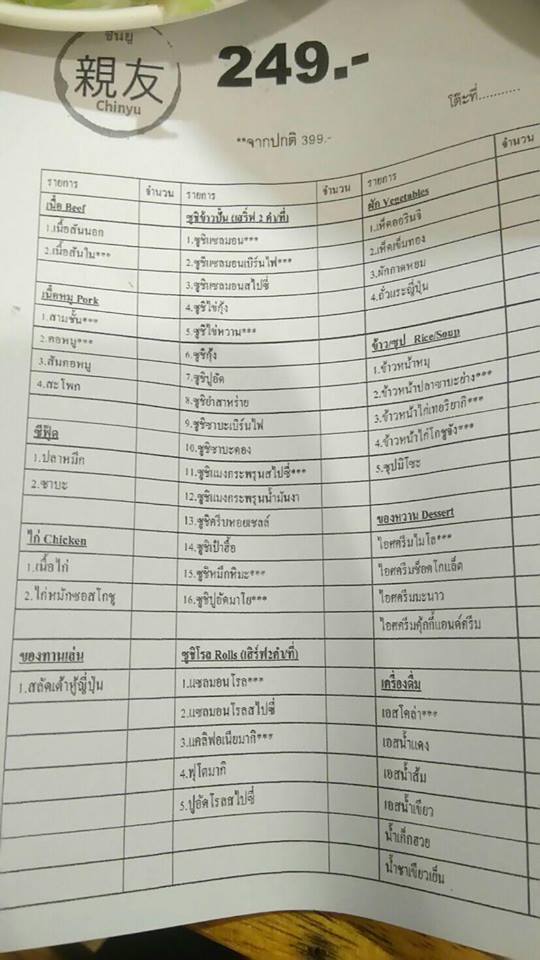 ชินยู
親友
Chinyu
249.-
โต๊ะที่...........
**จากปกติ 399.-
รายการ
จำนวน
เนื้อ Beef
1.เนื้อสันนอก
2.เนื้อสันใน***
เนื้อหมู Pork
1.สามชั้น***
2.คอหมู***
3.สันคอหมู
4.สะโพก
ซีฟู้ด
1.ปลาหมึก
2.ซาบะ
ไก่ Chicken
1.เนื้อไก่
2.ไก่หมักซอสโกชู
ของทานเล่น
1.สลัดเต้าหู้ญี่ปุ่น
รายการ
จำนวน
ซูชิข้าวปั้น (เสริ์ฟ 2 คำ/ที่)
1.ซูชิแซลมอน***
2.ซูชิแซลมอนเบิร์นไฟ***
3.ซูชิแซลมอนสไปซี่
4.ซูชิไข่กุ้ง
5.ซูชิไข่หวาน***
6.ซูชิกุ้ง
7.ซูชิปูอัด
8.ซูชิยำสาหร่าย
9.ซูชิซาบะเบิร์นไฟ
10.ซูชิซาบะดอง
11.ซูชิแมงกระพรุนสไปซี่***
12.ซูชิแมงกระพรุนน้ำมันงา
13.ซูชิครีบหอยเชลล์
14.ซูชิเป๋าฮื้อ
15.ซูชิหมึกหิมะ***
16.ซูชิปูอัดมาโย***
ซูชิโรล Rolls (เสิร์ฟ2คำ/ที่)
1.แซลมอนโรล***
2.แซลมอนโรลสไปซี่
3.แคลิฟอเนียมากิ***
4.ฟูโตมากิ
5.ปูอัดโรลสไปซี่
รายการ
จำนวน
ผัก Vegetables
1.เห็ดออรินจิ
2.เห็ดเข็มทอง
3.ผักกาดหอม
4.ถั่วแระญี่ปุ่น
ข้าว/ซุป Rice/Soup
1.ข้าวหน้าหมู
2.ข้าวหน้าปลาซาบะย่าง***
3.ข้าวหน้าไก่เทอริยากิ***
4.ข้าวหน้าไก่โกชูจัง***
5.ซุปมิโซะ
ของหวาน Dessert
ไอศครีมไมโล***
ไอศครีมช็อคโกแล็ต
ไอศครีมมะนาว
ไอศครีมคุ้กกี้แอนด์ครีม
เครื่องดื่ม
เอสโคล่า***
เอสน้ำแดง
เอสน้ำส้ม
เอสน้ำเขียว
น้ำเก็กฮวย
น้ำชาเขียวเย็น